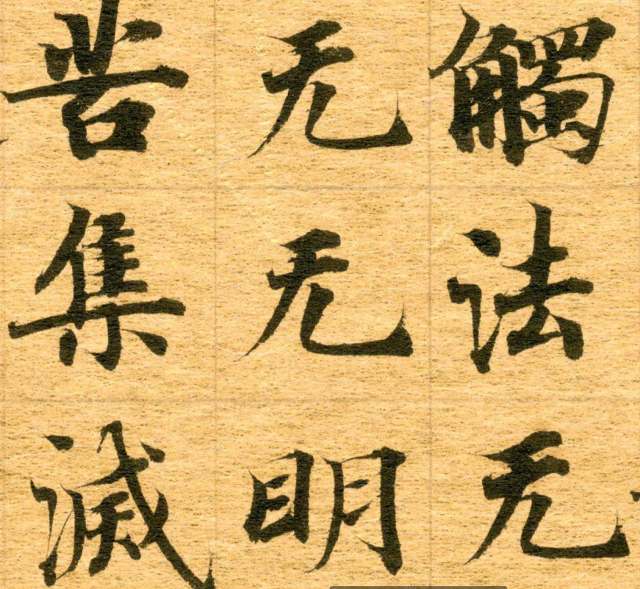 觸法无
无无明
苦集滅